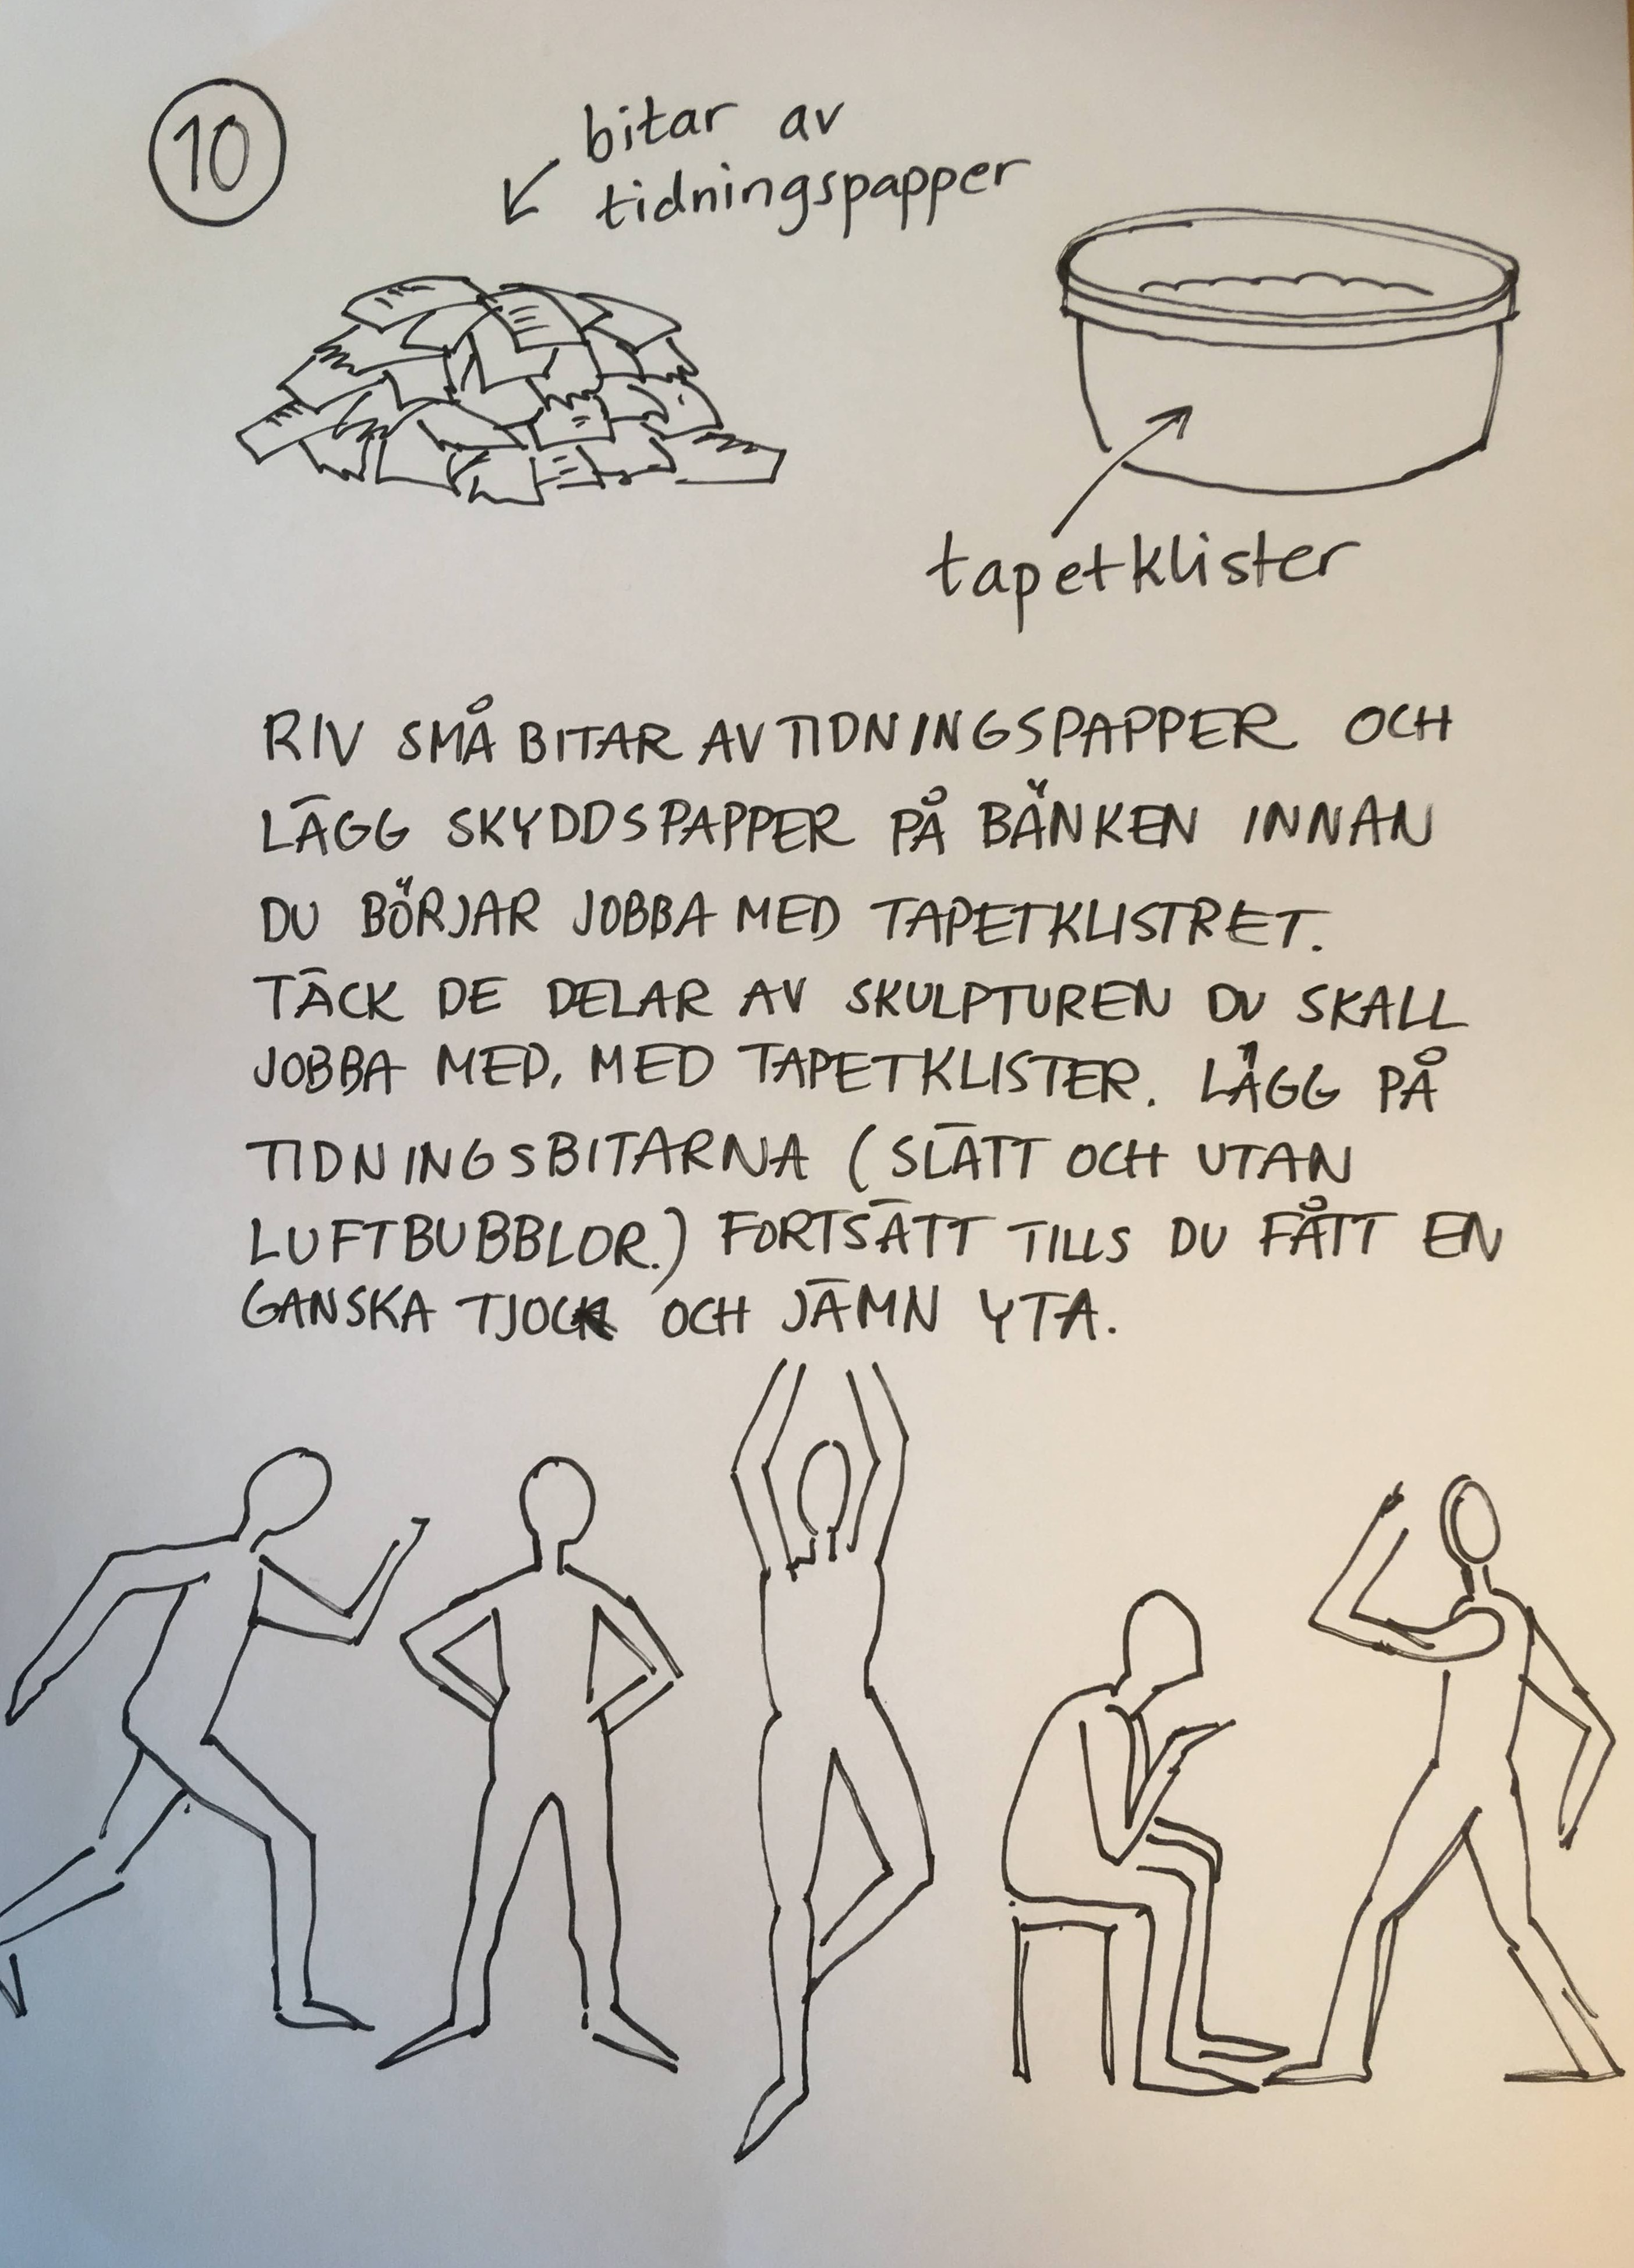 10
bitar av
tidningspapper
tapetklister
RIV SMÅ BITAR AV TIDNINGSPAPPER OCH
LÄGG SKYDDSPAPPER PÅ BÄNKEN INNAN
DU BÖRJAR JOBBA MED TAPETKLISTRET.
TÄCK DE DELAR AV SKULPTUREN DU SKALL
JOBBA MED, MED TAPETKLISTER. LÄGG PÅ
TIDNINGSBITARNA (SLÄTT OCH UTAN
LUFTBUBBLOR.) FORTSÄTT TILLS DU FÅTT EN
GANSKA TJOCK OCH JÄMN YTA.